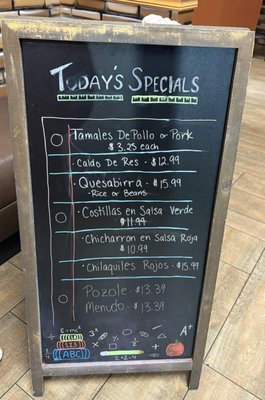 Today's Specials
Tamales De Pollo or Pork
$3.25 each
Caldo De Res - $12.99
Quesabirra - $15.99
- Rice or Beans
Costillas en Salsa Verde
$11.99
Chicharron en Salsa Roja
$10.99
Chilaquiles Rojos - $15.99
Pozole - $13.39
Menudo - $13.39
E=mc²
123
ABC
2+2=4
A+